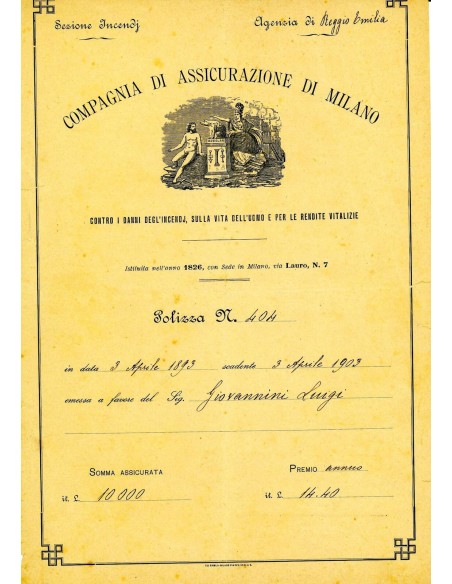 Sezione Incendj
Agenzia di Reggio Emilia
COMPAGNIA DI ASSICURAZIONE DI MILANO
CONTRO I DANNI DEGL'INCENDJ, SULLA VITA DELL'UOMO E PER LE RENDITE VITALIZIE
Istituita nell'anno 1826, con Sede in Milano, via Lauro, N. 7
Polizza N. 404
in data 3 Aprile 1893 scadente 3 Aprile 1903
emessa a favore del Sig. Giovannini Luigi
SOMMA ASSICURATA
PREMIO annuo
it. £ 10 000
it. £ 14.40